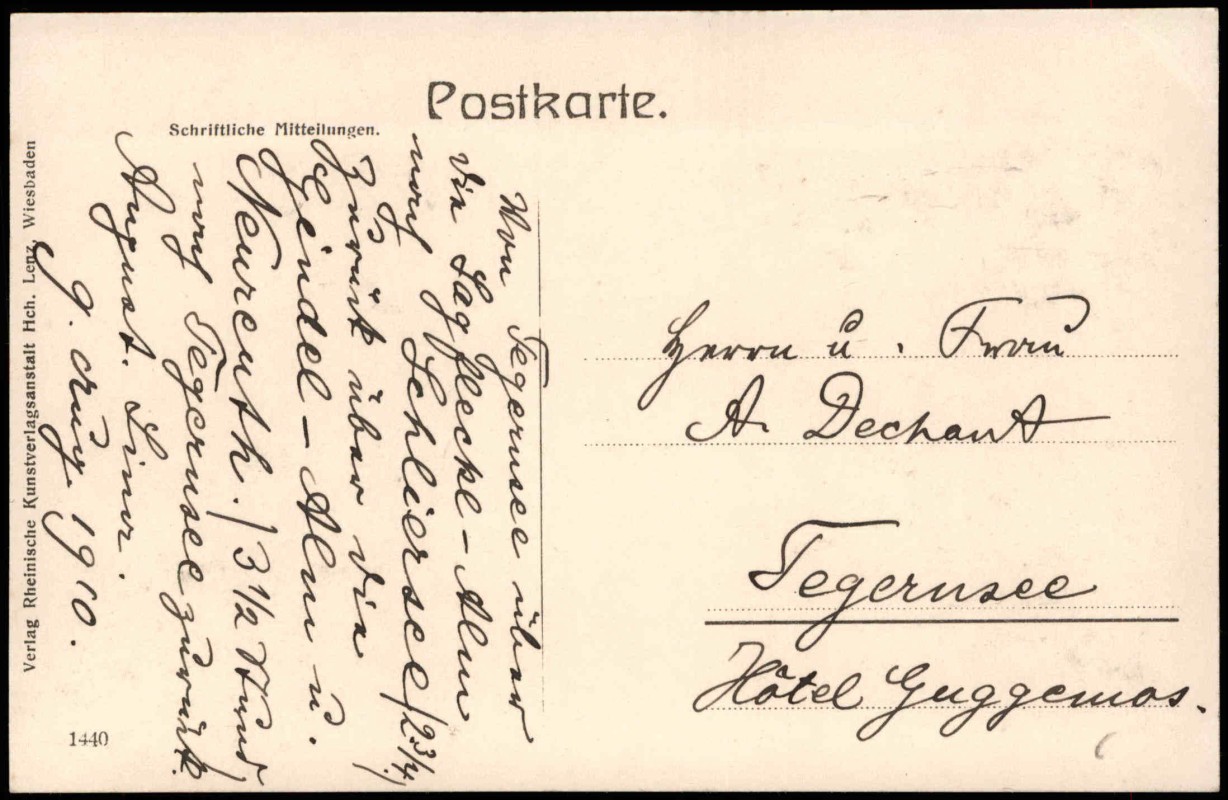 Postkarte.
Schriftliche Mitteilungen.
Von Tegernsee über
die Sagfleckl-Alm
nach Schliersee /2¾/
Zurück über die
Gindel-Alm u.
Neureuth. / 3½ Stund/
nach Tegernsee zurück.
August.
9. Aug 1910.
Herrn u. Frau
A. Dechant
Tegernsee
Hôtel Guggemos.
Verlag Rheinische Kunstverlagsanstalt Hch. Lenz, Wiesbaden
1440